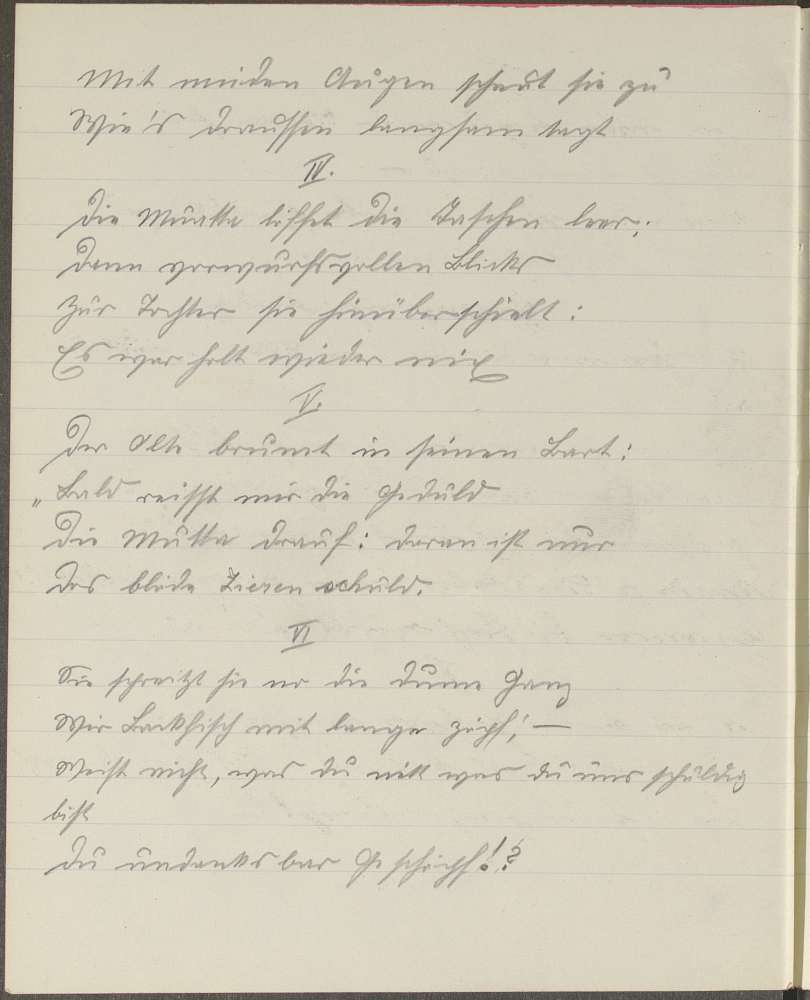 Mit müden Augen schaut sie zu
Wie's draussen langsam tagt
IV.
Die Muatta lifftet die Taschen leer;
Dann vorwurfsvollen Blicks
Zur Tochter sie hinüberschielt:
Es war halt wieder nix
V.
Der Alte brumt in seinen Bart:
„Bald reisst mir die Geduld
Die Mutta drauf: daran ist nur
Das blöde Zieren schuld.
VI
Sie schreitzt sie no die dume Ganz
Wie Backfisch mit lange Zöpf! —
Weist nicht, was du nítt was du uns schuldig
bist
Du undanksbar Geschöpf!?